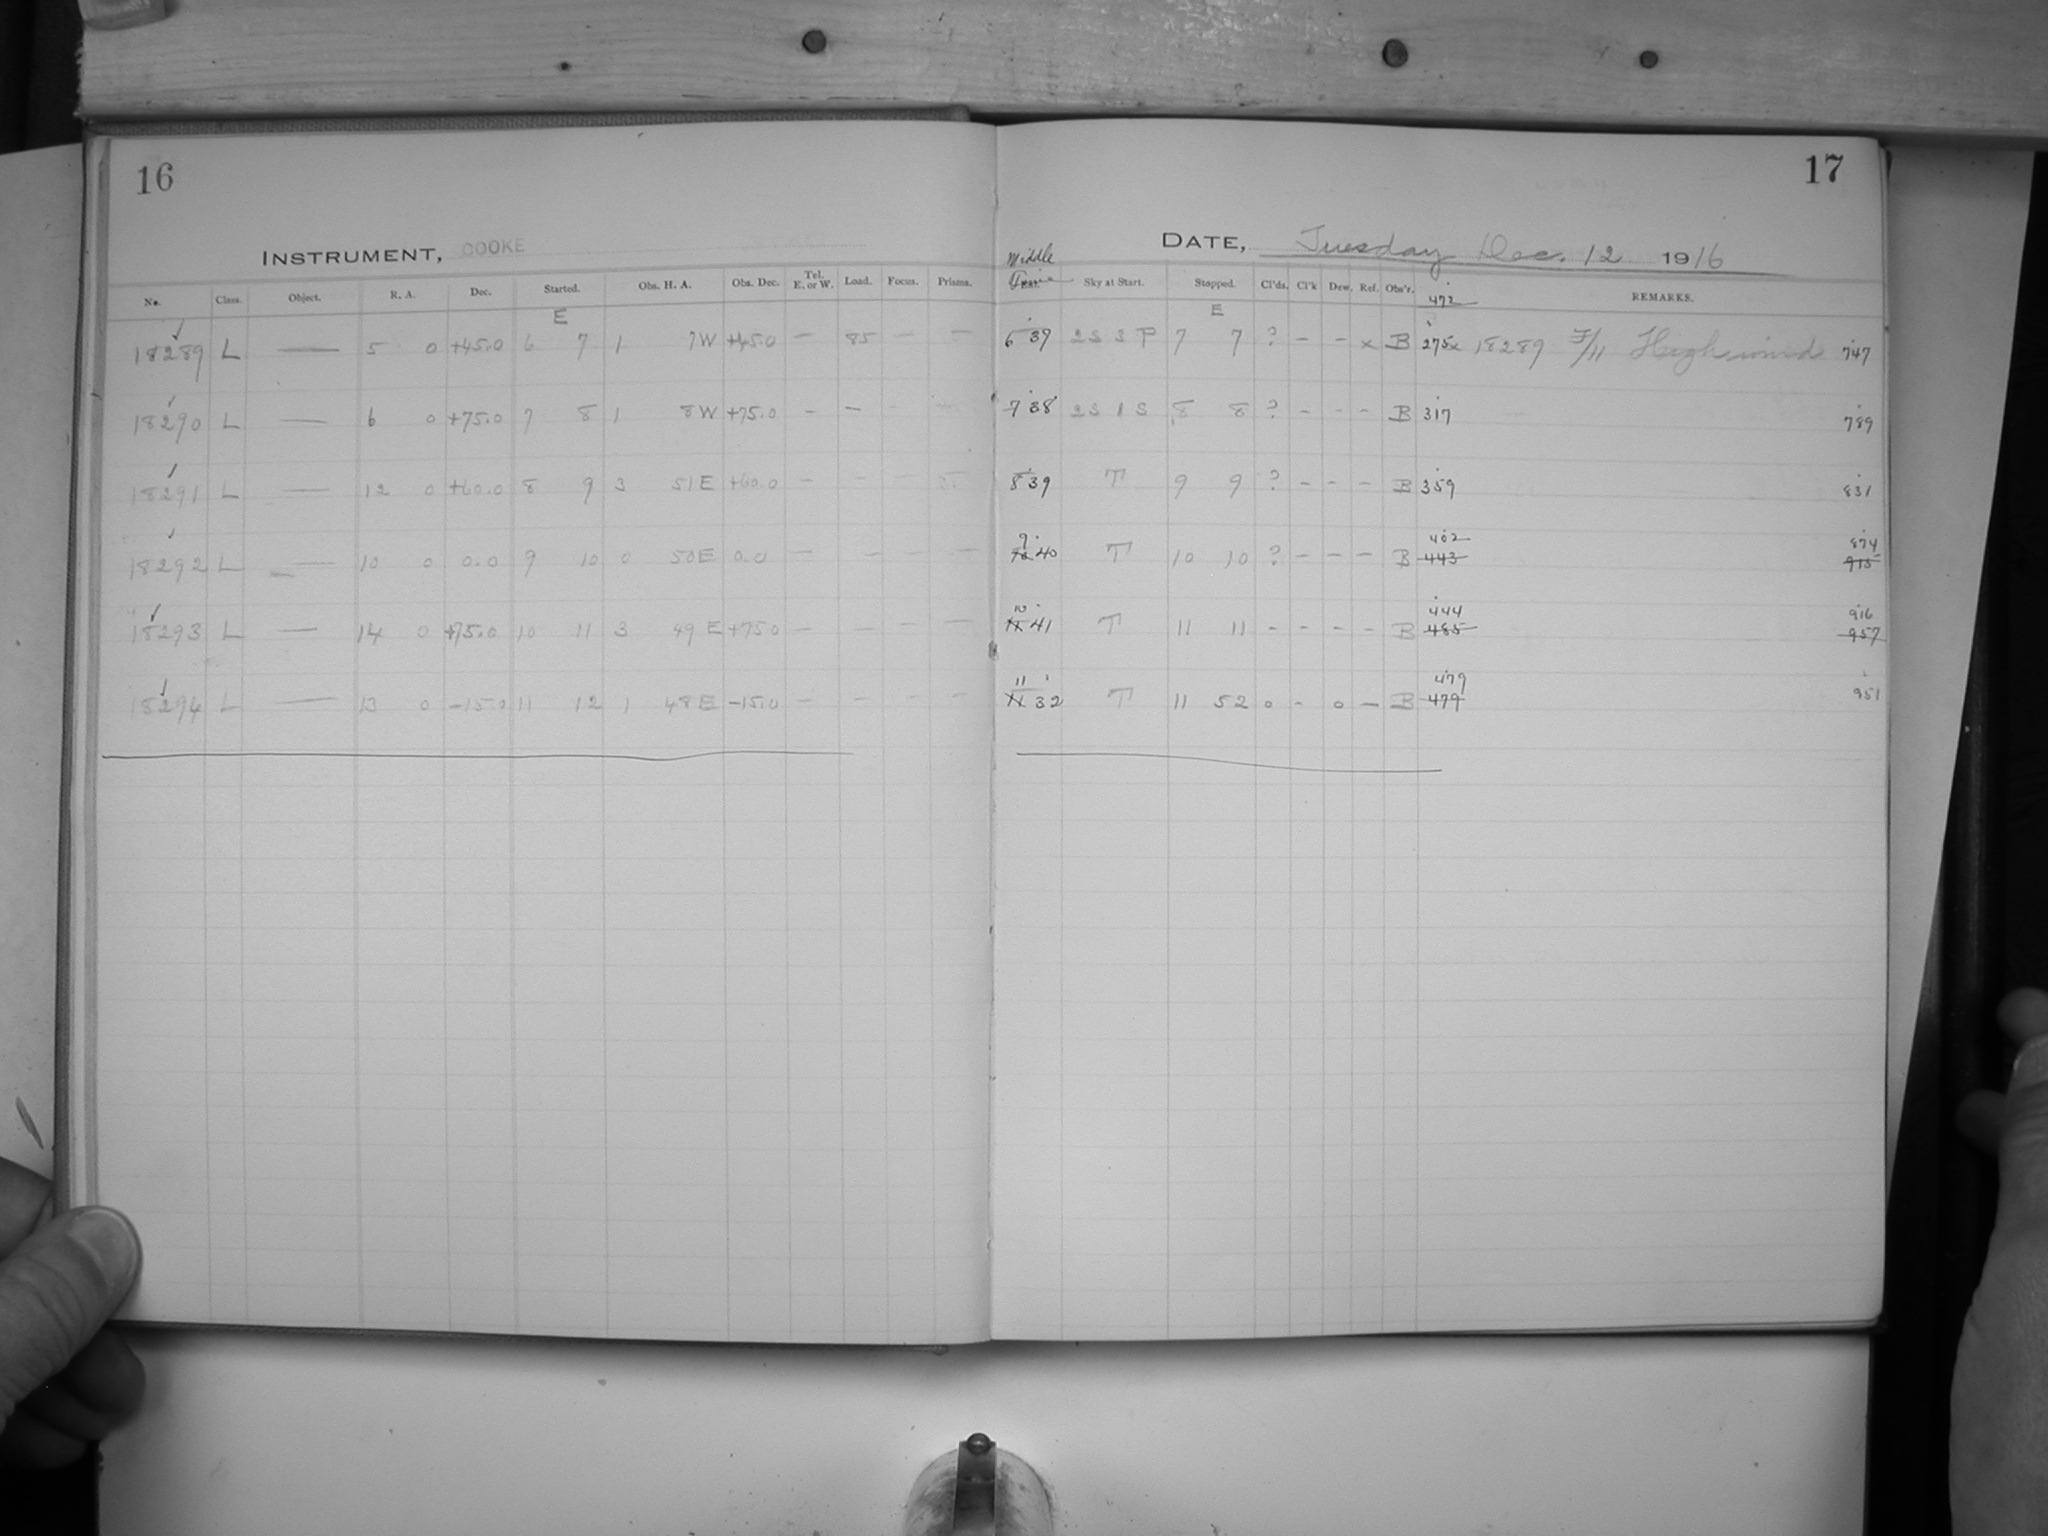 16
INSTRUMENT, COOKE
No. Class. Object. R. A. Dec. Started. Obs. H. A. Obs. Dec. Tel. E. or W. Load. Focus. Prisms.
E
18289 L — 5 0 +45.0 6 7 1 7W +45.0 — 85 — —
18290 L — 6 0 +75.0 7 8 1 8W +75.0 — — — —
18291 L — 12 0 +60.0 8 9 3 51E +60.0 — — — —
18292 L — 10 0 0.0 9 10 0 50E 0.0 — — — —
18293 L — 14 0 +75.0 10 11 3 49E +75.0 — — — —
18294 L — 13 0 -15.0 11 12 1 48E -15.0 — — — —
17
DATE, Tuesday Dec. 12 1916
Middle
Time Sky at Start. Stopped. Cl'ds. Cl'k Dew. Ref. Obs'r. 472 REMARKS.
E
6 39 2S 3 P 7 7 ? - - x B 275 x 18289 F/11 High wind 747
7 38 2S 1 S 8 8 ? - - - B 317 789
8 39 T 9 9 ? - - - B 359 831
9 402 874
10 40 T 10 10 ? - - - B 443 915
10 444 916
11 41 T 11 11 - - - - B 485 957
11 479
11 32 T 11 52 0 - 0 - B 479 951